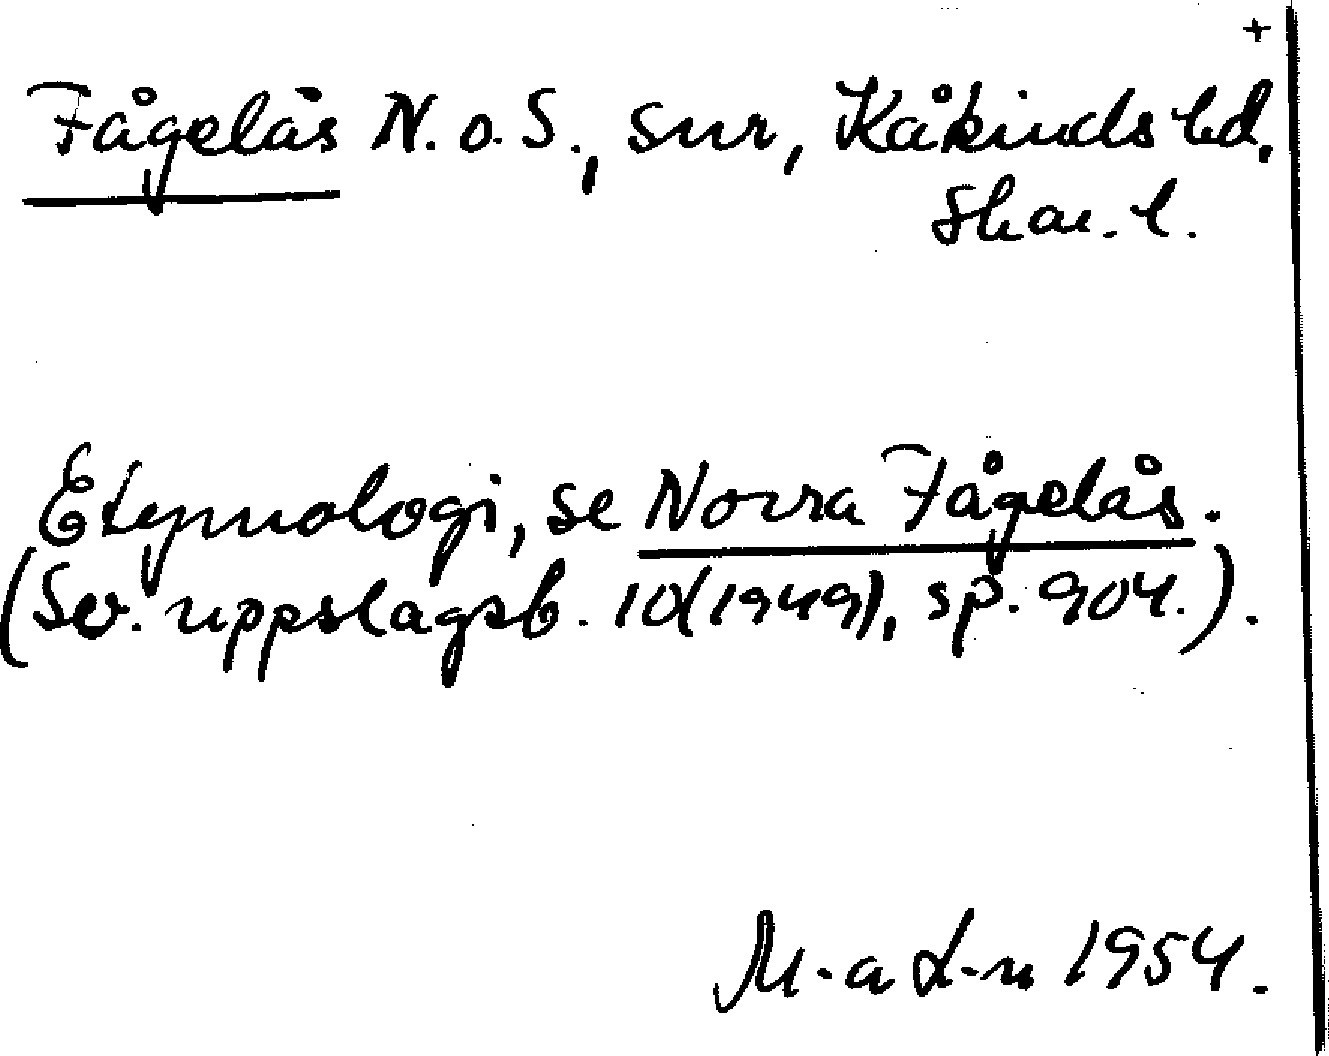 +
Fågelås N. o. S., snr, Kåkinds hd,
Skar. l.
Etymologi, se Norra Fågelås.
(Sv. uppslagsb. 10(1949), sp. 904.).
M-a L-n 1954.